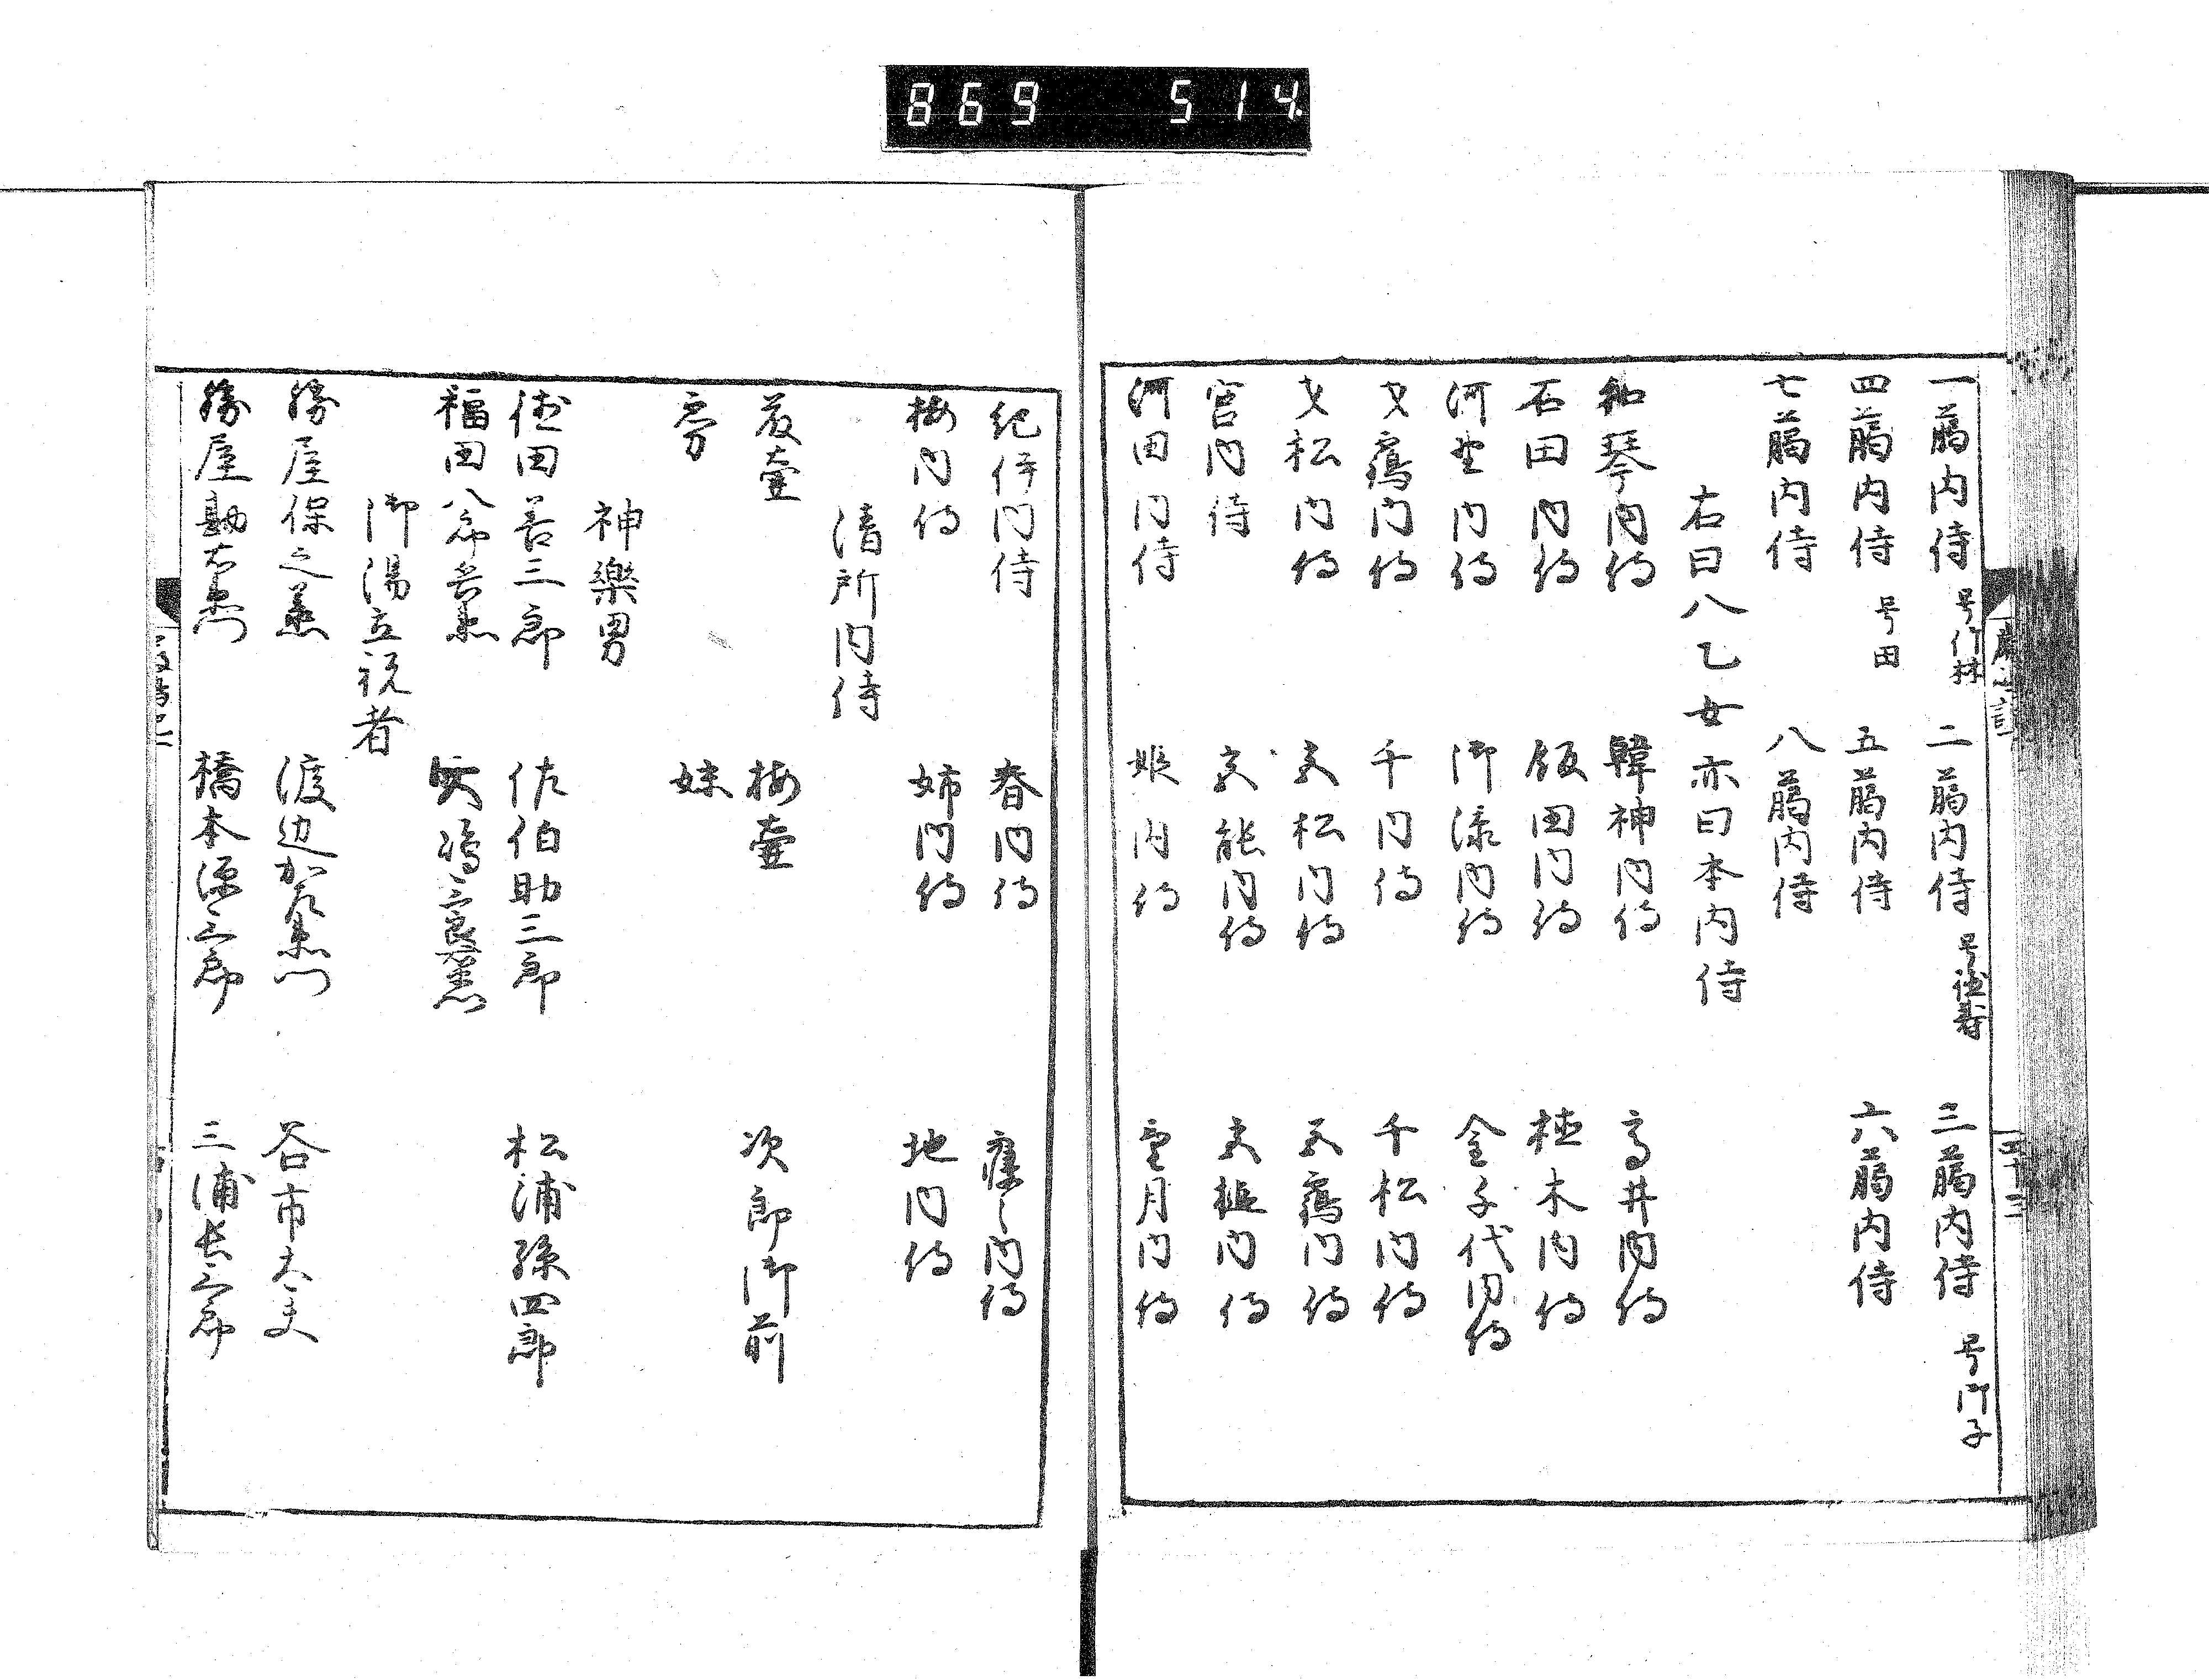 869 514
一﨟内侍 号竹林 二﨟内侍 号徳寿 三﨟内侍 号御子
四﨟内侍 号田 五﨟内侍 六﨟内侍
七﨟内侍 八﨟内侍
右曰八乙女亦曰本内侍
和琴内侍 韓神内侍 高井内侍
石田内侍 飯田内侍 植木内侍
河野内侍 御添内侍 金子代内侍
内侍 千内侍 千松内侍
松内侍 松内侍 内侍
宮内侍 内侍 内侍
河田内侍 姫内侍 月内侍
紀伊内侍 春内侍 内侍
梅内侍 姉内侍 地内侍
清所内侍
藤壷 梅壷 次郎御前
妹
神楽男
徳田善三郎 佐伯助三郎 松浦孫四郎
福田八郎兵衛
御湯立祝者
勝屋保之進 渡辺加左衛門 谷市太夫
勝屋勘右衛門 橋本源三郎 三浦長三郎